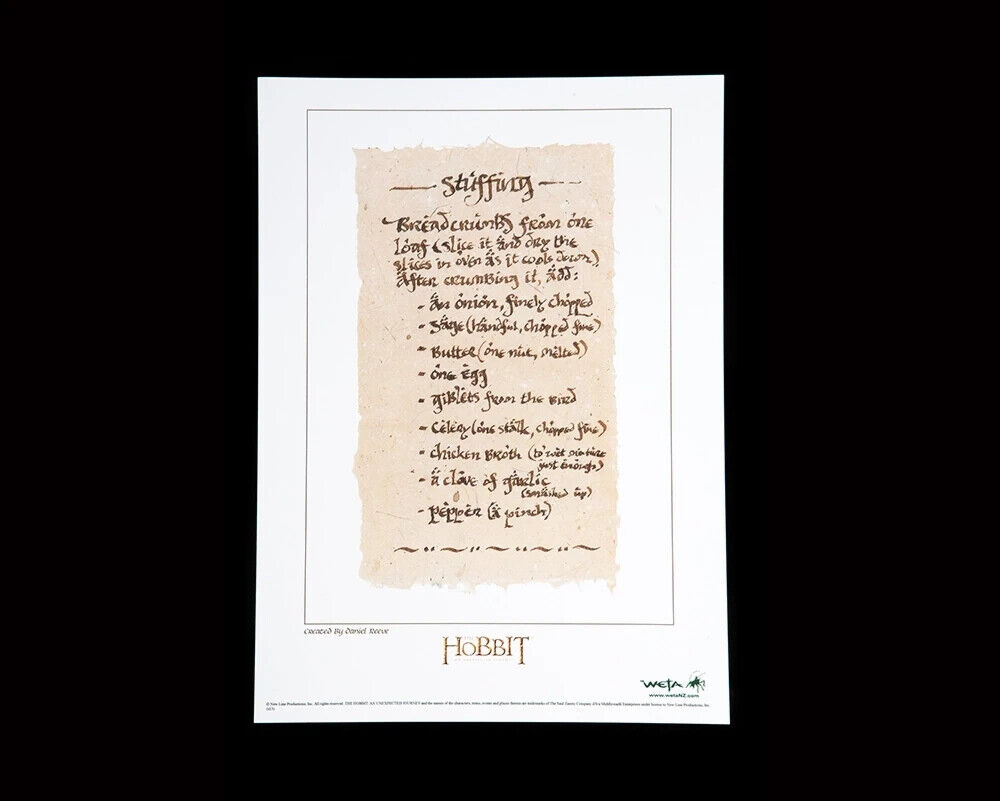 Stuffing
Breadcrumbs from one
loaf (slice it and dry the
slices in oven as it cools down)
After crumbing it, add:
- an onion, finely chopped
- Sage (handful, chopped fine)
- Butter (one nut, melted)
- one egg
- giblets from the bird
- Celery (one stalk, chopped fine)
- chicken Broth (to wet mixture
just enough)
- a clove of garlic
(smashed up)
- pepper (a pinch)
Created By Daniel Reeve
THE HOBBIT
AN UNEXPECTED JOURNEY
WETA
www.wetaNZ.com
© New Line Productions, Inc. All rights reserved. THE HOBBIT: AN UNEXPECTED JOURNEY and the names of the characters, items, events and places therein are trademarks of The Saul Zaentz Company d/b/a Middle-earth Enterprises under license to New Line Productions, Inc.